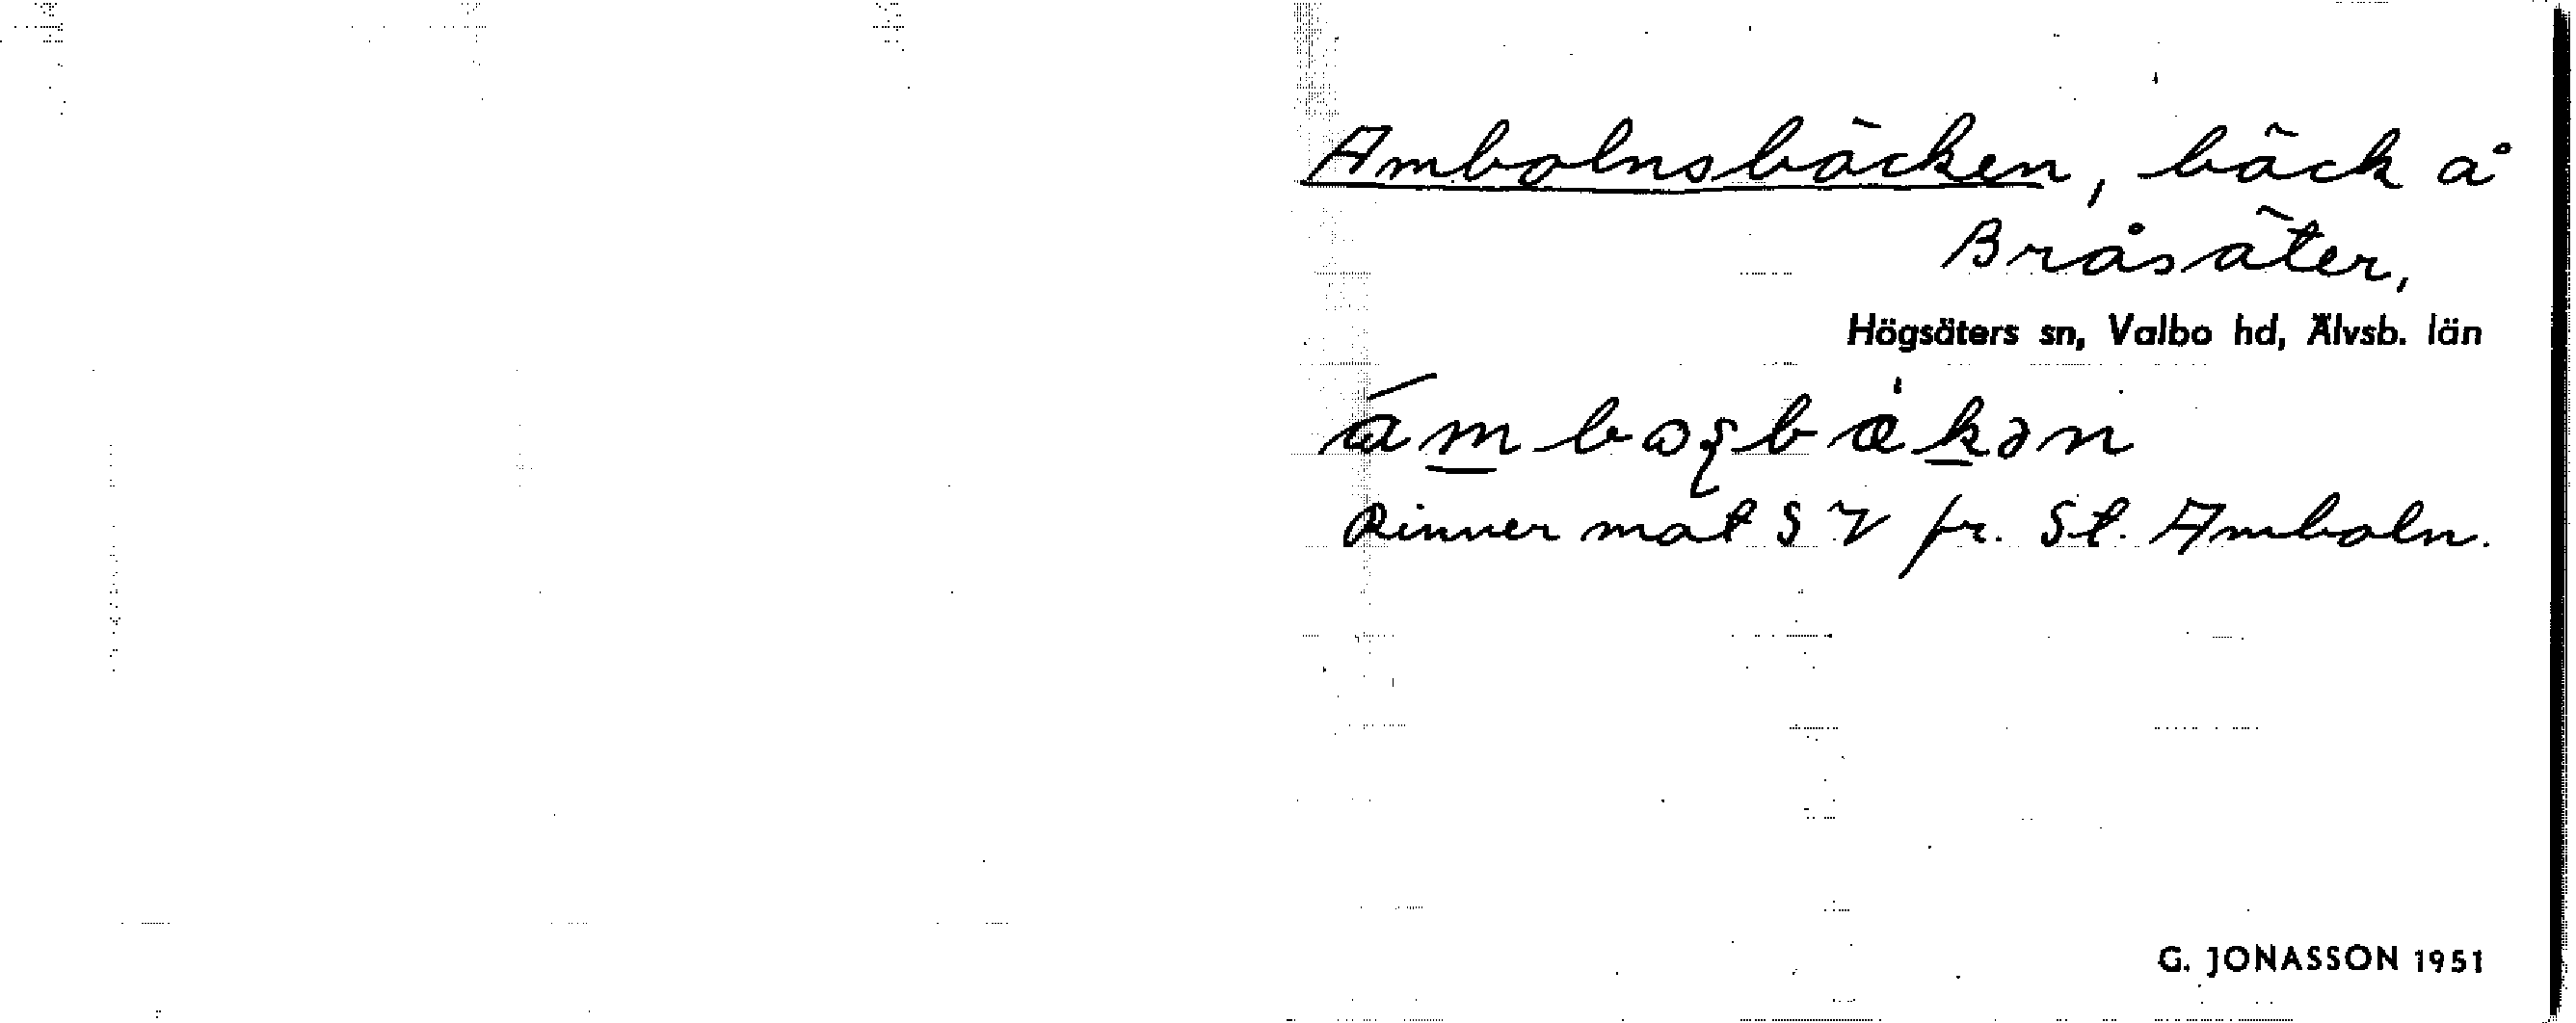 Ambolnsbäcken, bäck å
Bråsäter,
Högsäters sn, Valbo hd, Älvsb. län
Rinner mot SV fr. St. Amboln.
G. JONASSON 1951